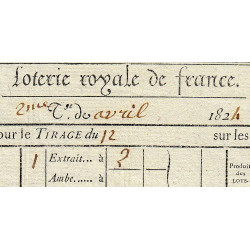 Loterie royale de france.
2me Te. de avril 1824
our le TIRAGE du 12 sur les
1 Extrait.... à 2
Ambe..... à
Produit
des
LOTS